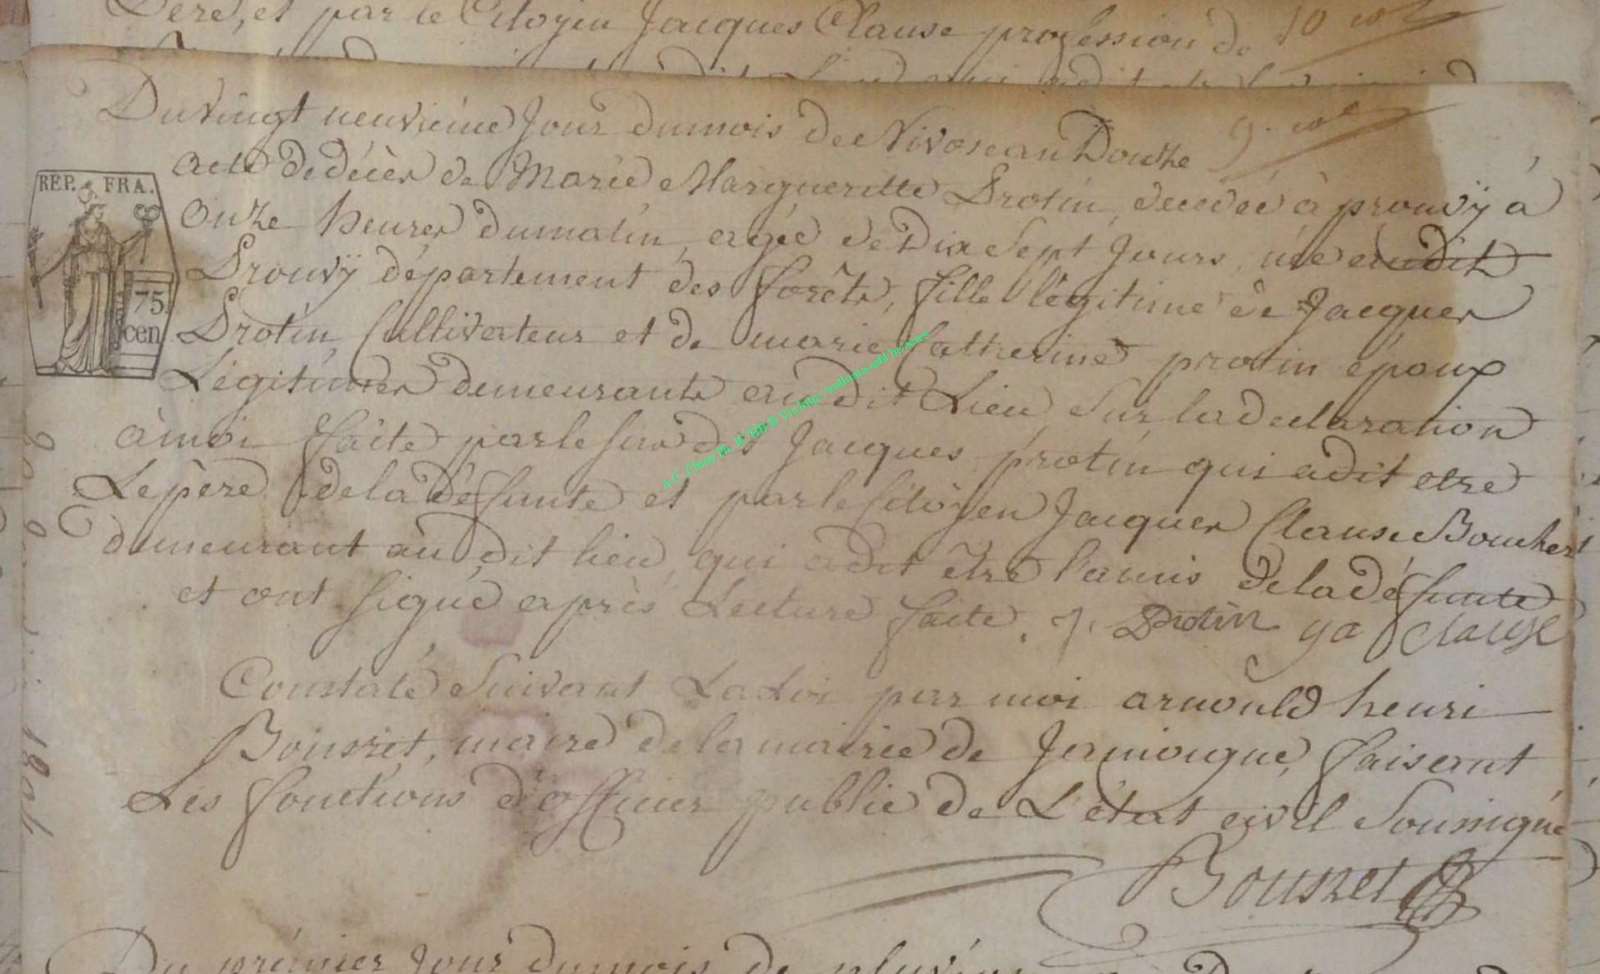 Dere, et par le Citoyen Jacques Clause profession de 10 col
Du vingt neuvieme Jour du mois de Nivose an Douze 9. col
acte de décès de Marie Margueritte Protin, decedée à prouvÿ à
onze heures du matin, agée de Dix Sept Jours, née audit
Prouvÿ département des forêts, fille légitime de Jacques
Protin Cultivateur et de marie Catherine protin époux
Légitimes demeurants au dit Lieu, Sur la declaration
à moi faite par le susdit Jacques protin qui a dit etre
Le père de la défunte et par le Citoÿen Jacques Clause Boucher
demeurant au dit lieu, qui a dit être l'amis de la défunte
et ont signé après Lecture faite. J. Protin ja Clause
Constaté Suivant La Loi par moi arnould henri
Bousret, maire de la mairie de Jamoigne, faisant
Les fonctions d'officier public de L'état civil Soussigné
Bousret
Du prémier Jour du mois de pluviose
REP. FRA.
75
cen
1804